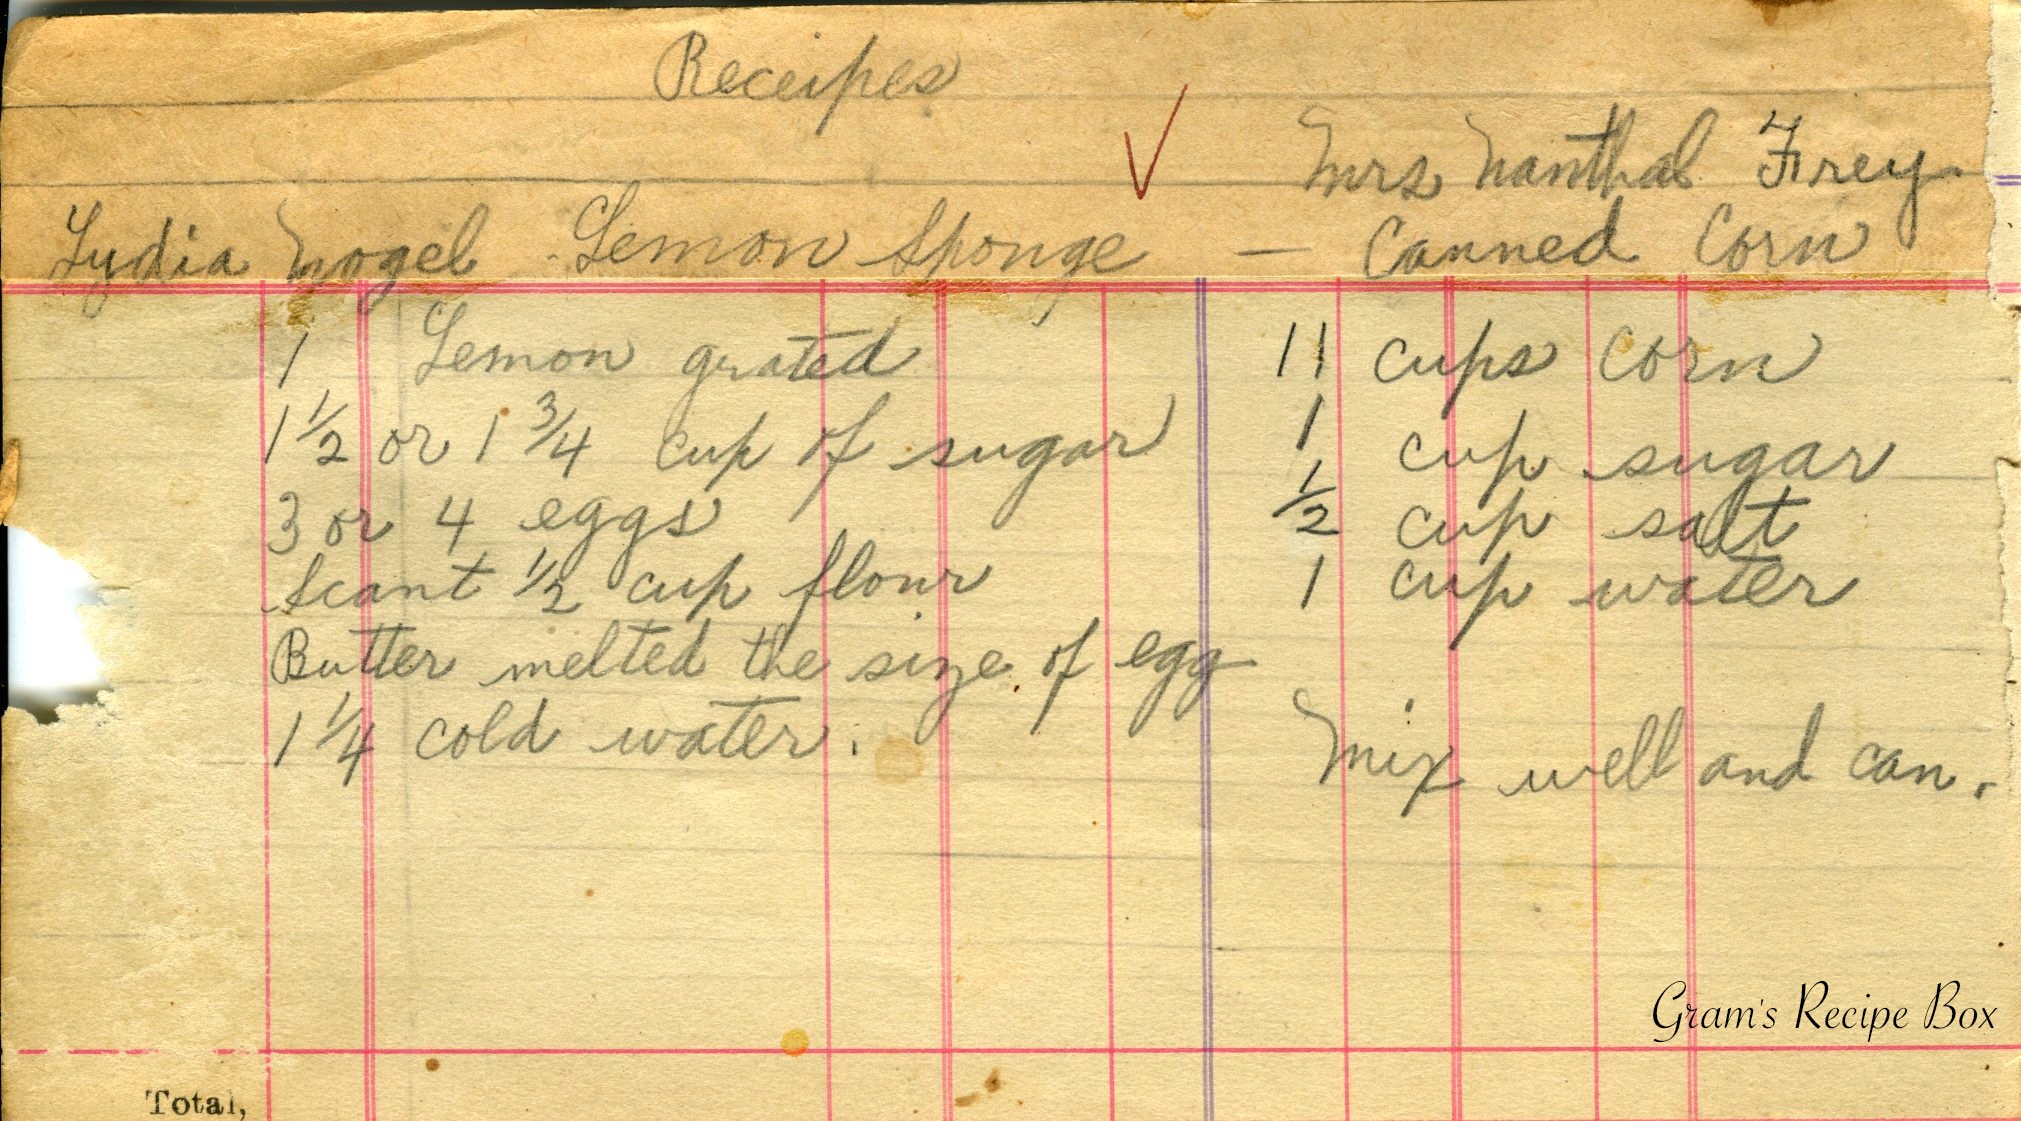 Receipes
Lydia Nogel Lemon Sponge –
1 Lemon grated
1 1/2 or 1 3/4 cup of sugar
3 or 4 eggs
Scant 1/2 cup flour
Butter melted the size of egg
1 1/4 cold water.
Mrs Nanthal Frey
Canned Corn
11 cups corn
1 cup sugar
1/2 cup salt
1 cup water
Mix well and can.
Gram's Recipe Box
Total,